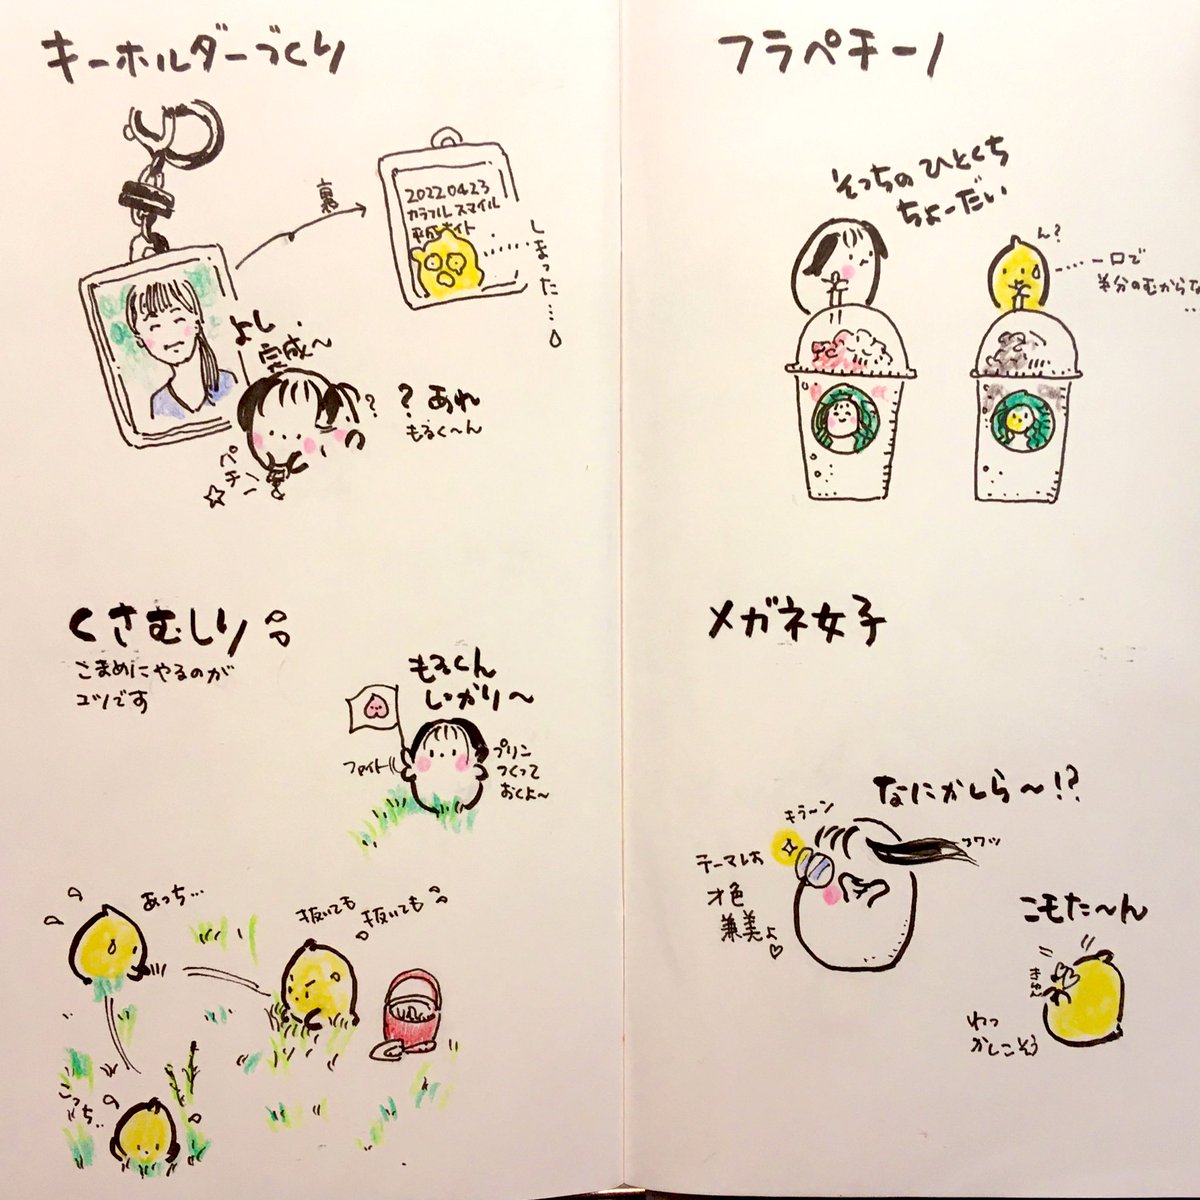 キーホルダーづくり
裏
2022.04.23
カラフルスマイル
平成ナイト
しまった…
よし
完成〜
?
? あれ
もるく〜ん
パチン
くさむしり
こまめにやるのが
コツです
もるくん
しっかり〜
ファイト
プリン
つくって
おくよ〜
あっち…
抜いても
抜いても
こっち..
フラペチーノ
そっちのひとくち
ちょーだい
ん?
……一口で
半分のむからな
…
メガネ女子
なにかしら〜!?
キラーン
テーマは
才色
兼美よ♡
こもた〜ん
きゅん
わっ
かしこそう